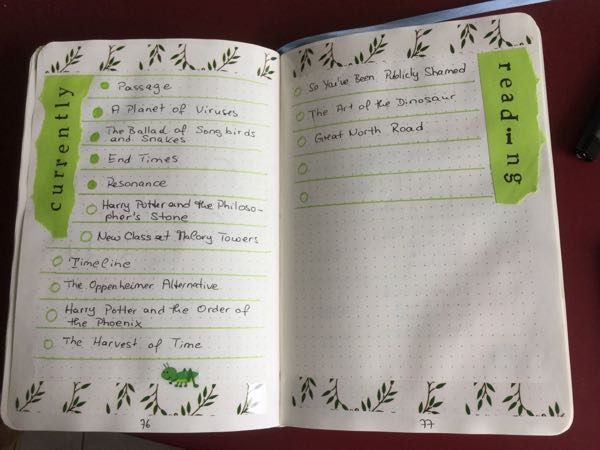 currently
Passage
A Planet of Viruses
The Ballad of Songbirds
and Snakes
End Times
Resonance
Harry Potter and the Philoso-
pher's Stone
New Class at Malory Towers
Timeline
The Oppenheimer Alternative
Harry Potter and the Order of
the Phoenix
The Harvest of Time
76
reading
So You've Been Publicly Shamed
The Art of the Dinosaur
Great North Road
77